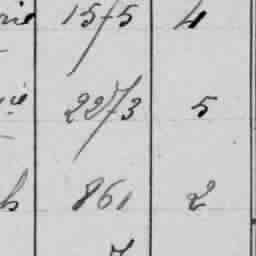 1575 4
2273 5
861 2